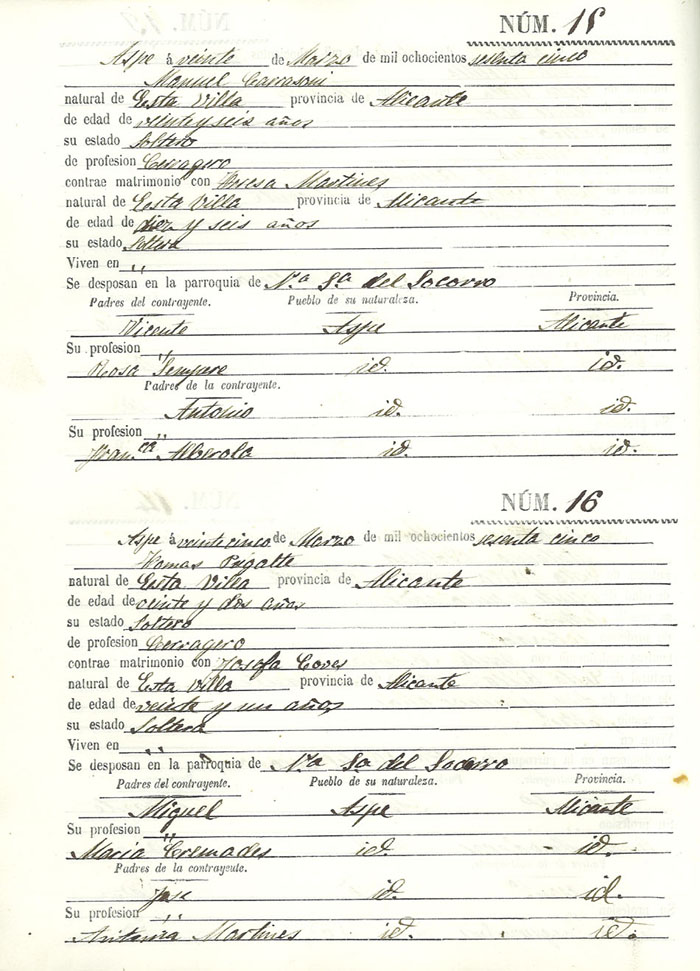 NÚM. 15
Aspe á veinte de Marzo de mil ochocientos sesenta cinco
Manuel Carrasco
natural de Esta Villa provincia de Alicante
de edad de veinte y seis años
su estado Soltero
de profesion Cerragero
contrae matrimonio con Teresa Martines
natural de Esta Villa provincia de Alicante
de edad de diez y seis años
su estado Soltera
Viven en "
Se desposan en la parroquia de N.ª S.ª del Socorro
Padres del contrayente. Pueblo de su naturaleza. Provincia.
Vicente Aspe Alicante
Su profesion "
Rosa Sempere id. id.
Padres de la contrayente.
Antonio id. id.
Su profesion "
Fran.ca Alberola id. id.
NÚM. 16
Aspe á veinte cinco de Marzo de mil ochocientos sesenta cinco
Tomas
natural de Esta Villa provincia de Alicante
de edad de veinte y dos años
su estado Soltero
de profesion Cerragero
contrae matrimonio con Josefa Coves
natural de Esta Villa provincia de Alicante
de edad de veinte y un años
su estado Soltera
Viven en "
Se desposan en la parroquia de N.ra S.a del Socorro
Padres del contrayente. Pueblo de su naturaleza. Provincia.
Miguel Aspe Alicante
Su profesion "
Maria Cremades id. id.
Padres de la contrayente.
Jose id. id.
Su profesion "
Antonia Martines id. id.